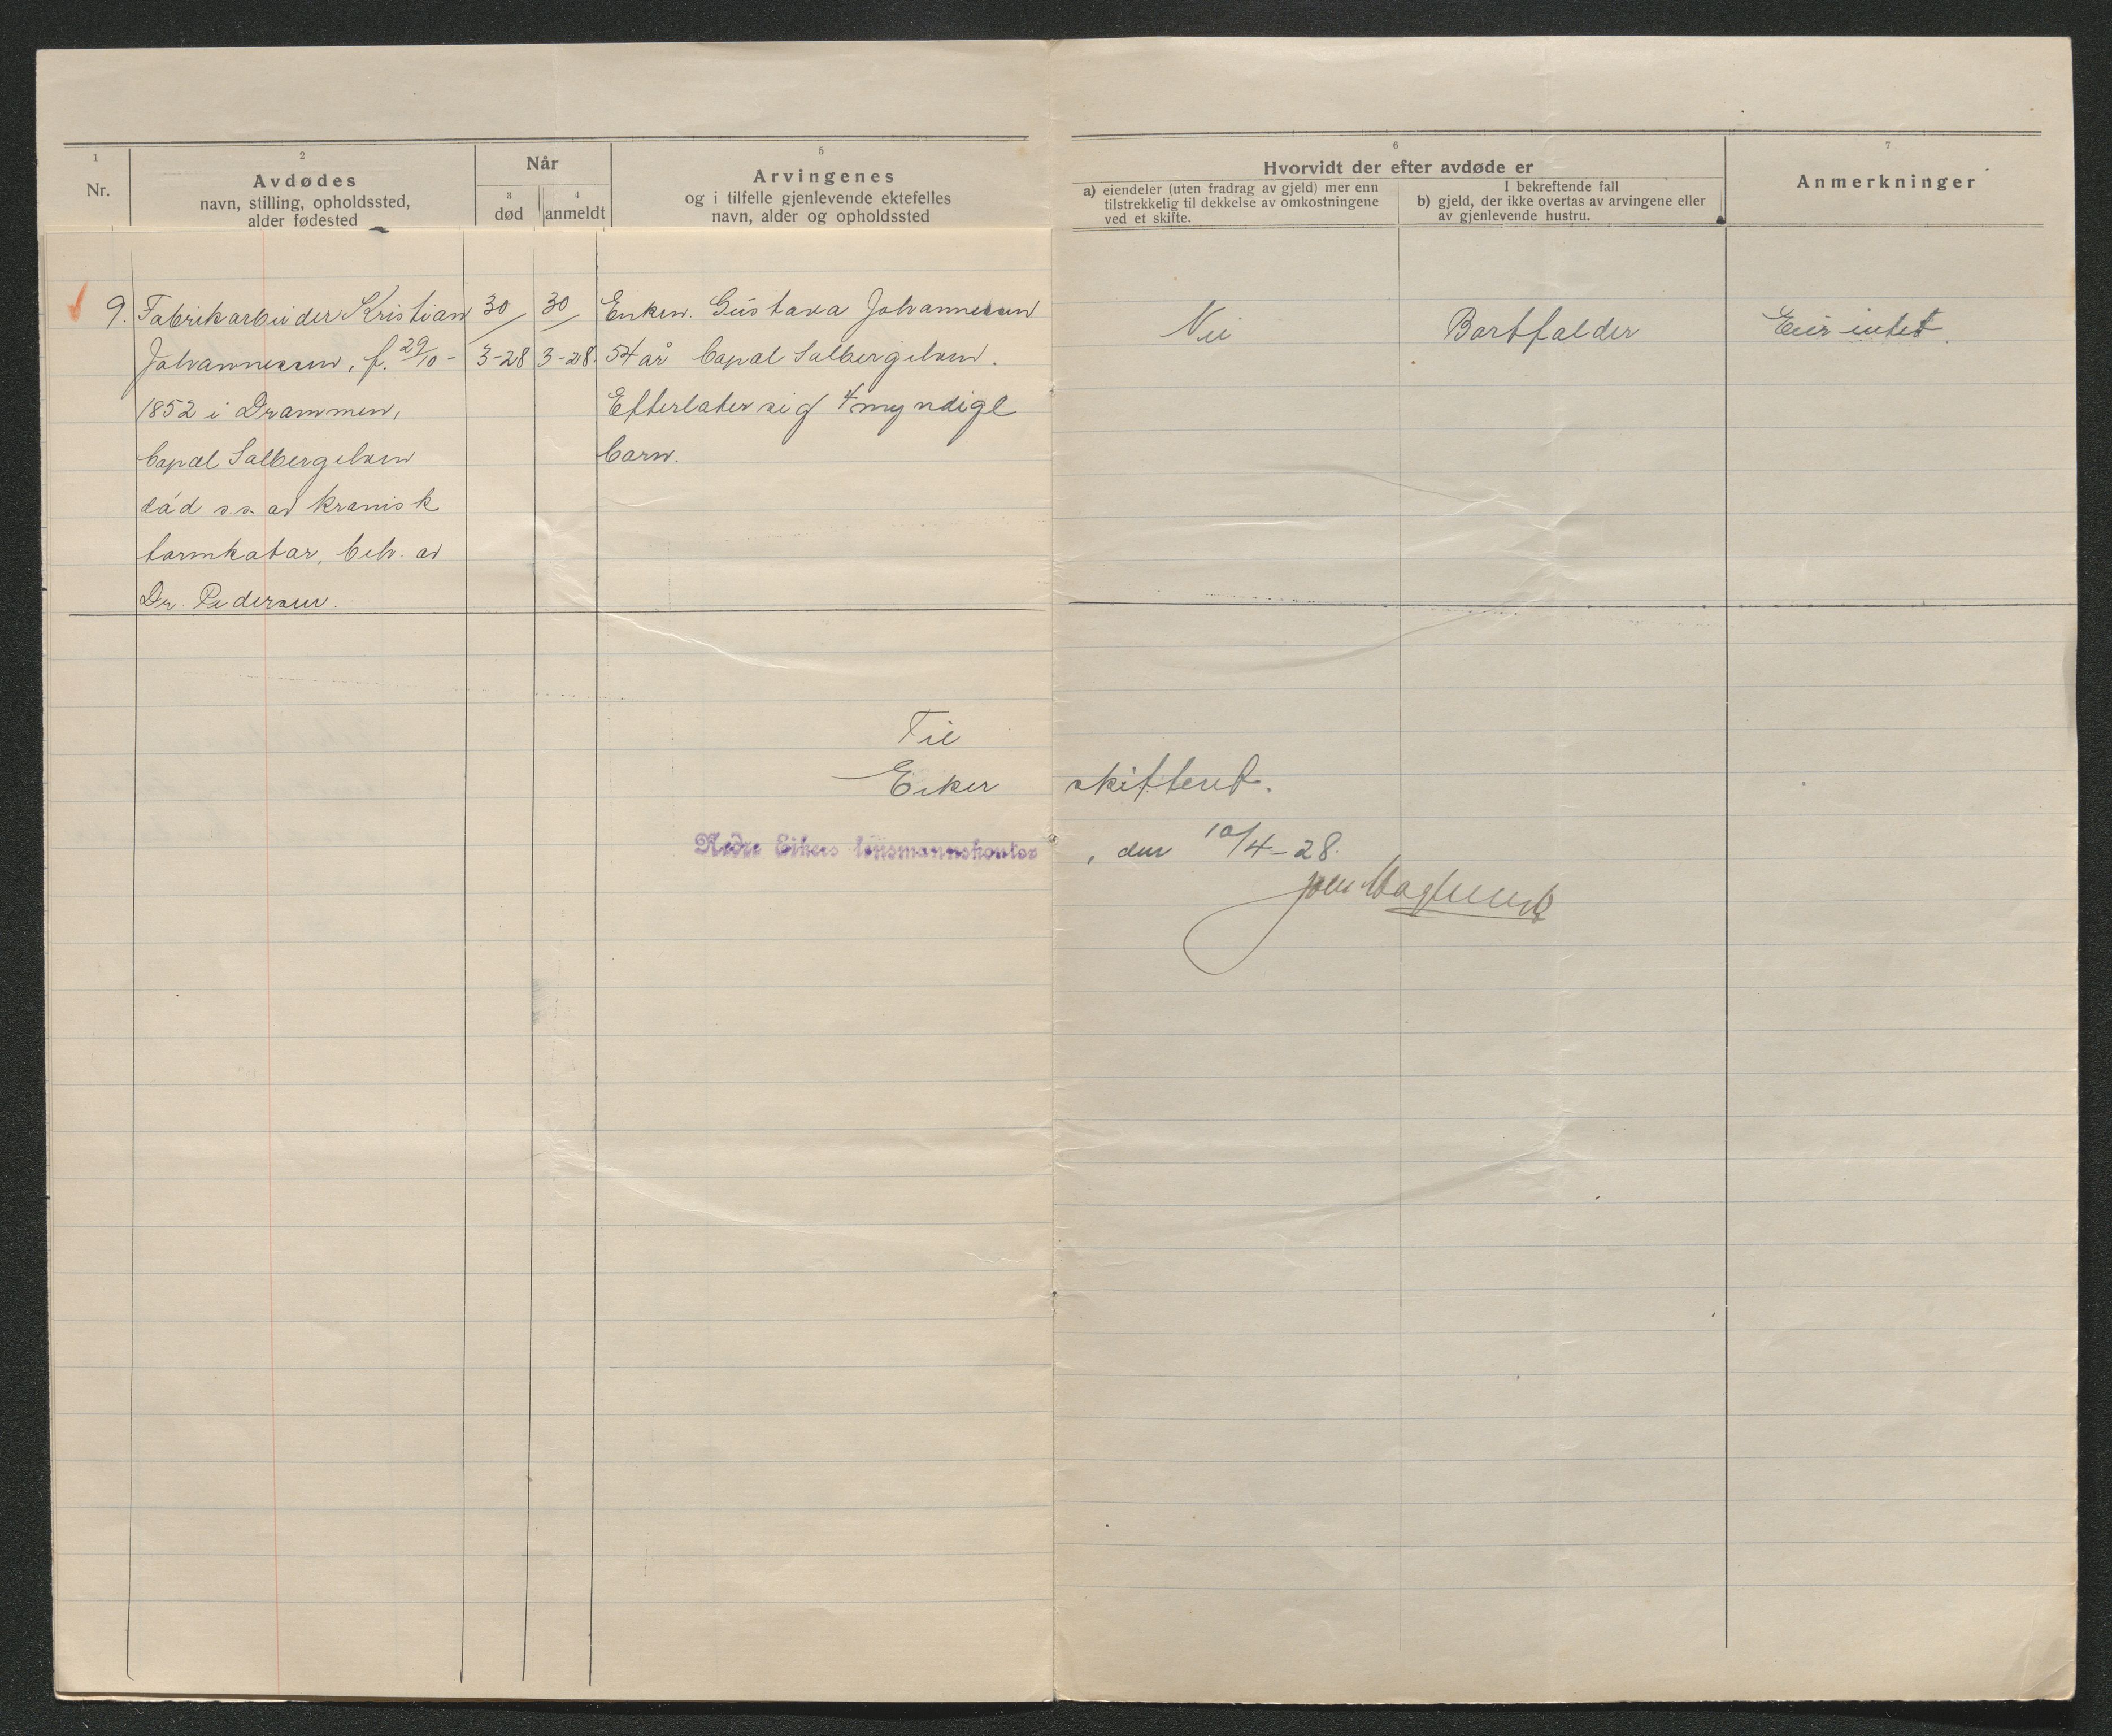 1
Nr.
2
Avdødes
navn, stilling, opholdssted,
alder fødested
Når
3
død
4
anmeldt
5
Arvingenes
og i tilfelle gjenlevende ektefelles
navn, alder og opholdssted
6
Hvorvidt der efter avdøde er
a) eiendeler (uten fradrag av gjeld) mer enn
tilstrekkelig til dekkelse av omkostningene
ved et skifte.
I bekreftende fall
b) gjeld, der ikke overtas av arvingene eller
av gjenlevende hustru.
7
Anmerkninger
9.
Fabrikarbeider Kristian
Johannessen, f. 29/10-
1852 i Drammen,
bopæl Solbergelven
død s.s. av kronisk
tarmkatar, beh. av
Dr. Pedersen.
30/
3-28
30/
3-28.
Enken. Gustava Johannessen
54 år bopæl Solbergelven.
Efterlater sig 4 myndige
barn.
Nei
Bortfalder
Eier intet.
Til
Eiker skifteret.
Nedre Eikers lensmannskontor, den 10/4-28.